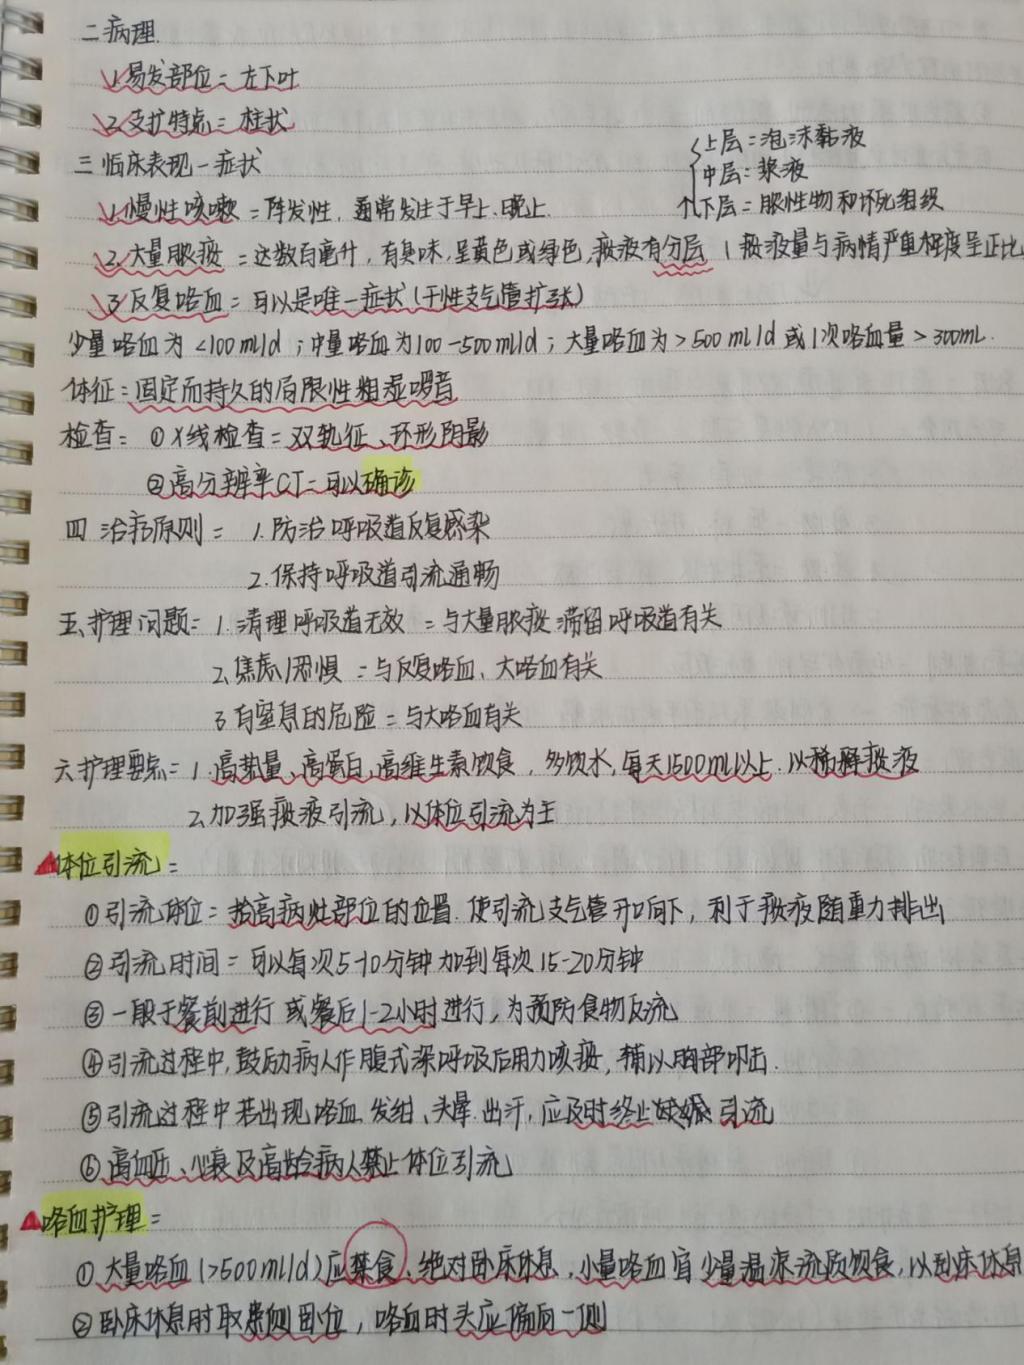 二 病理
1. 易发部位=左下叶
2. 支扩特点=柱状
三 临床表现-症状
上层=泡沫黏液
中层=浆液
下层=脓性物和坏死组织
1. 慢性咳嗽=阵发性,通常发生于早上.晚上.
2. 大量脓痰=达数百毫升,有臭味,呈黄色或绿色,痰液有分层 (痰液量与病情严重程度呈正比
3 反复咯血=可以是唯一症状(干性支气管扩张)
少量咯血为<100ml/d;中量咯血为100-500ml/d;大量咯血为>500ml/d或1次咯血量>300mL.
体征=固定而持久的局限性粗湿啰音
检查=①X线检查=双轨征、环形阴影
②高分辨率CT=可以确诊
四 治疗原则= 1.防治呼吸道反复感染
2.保持呼吸道引流通畅
五、护理问题= 1.清理呼吸道无效=与大量脓痰滞留呼吸道有关
2、焦虑/恐惧=与反复咯血、大咯血有关
3 有窒息的危险=与大咯血有关
六 护理要点= 1.高热量、高蛋白、高维生素饮食,多饮水,每天1500ml以上.以稀释痰液
2、加强痰液引流,以体位引流为主
体位引流=
①引流体位=抬高病灶部位的位置.使引流支气管开口向下,利于痰液随重力排出
②引流时间=可以每次5-10分钟加到每次15-20分钟
③一般于餐前进行或餐后1-2小时进行,为预防食物反流
④引流过程中,鼓励病人作腹式深呼吸后用力咳痰,辅以胸部叩击.
⑤引流过程中若出现咯血.发绀、头晕.出汗,应及时终止引流
⑥高血压、心衰及高龄病人禁止体位引流
咯血护理=
①大量咯血(>500ml/d)应禁食、绝对卧床休息,小量咯血宜少量温凉流质饮食,以卧床休息
②卧床休息时取患侧卧位,咯血时头应偏向一侧